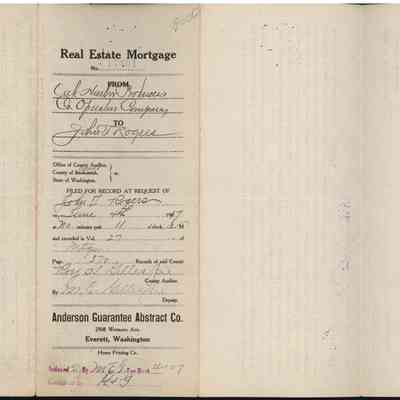 Real Estate Mortgage
No.
FROM
Oak Harbor Producers
Co. Operative Company
TO
John T. Rogers
Office of County Auditor,
County of
State of Washington. } ss.
FILED FOR RECORD AT REQUEST OF
John T. Rogers
on June 4th 191 7
at No minutes past 11 o'clock A M
and recorded in Vol. 27 of
Mtgs
Page 370 Records of said County
Roy S. Gillespie
County Auditor.
By M. E. Gillespie
Deputy.
Anderson Guarantee Abstract Co.
2908 Wetmore Ave.
Everett, Washington
Home Printing Co.
Indexed By M.E.G.